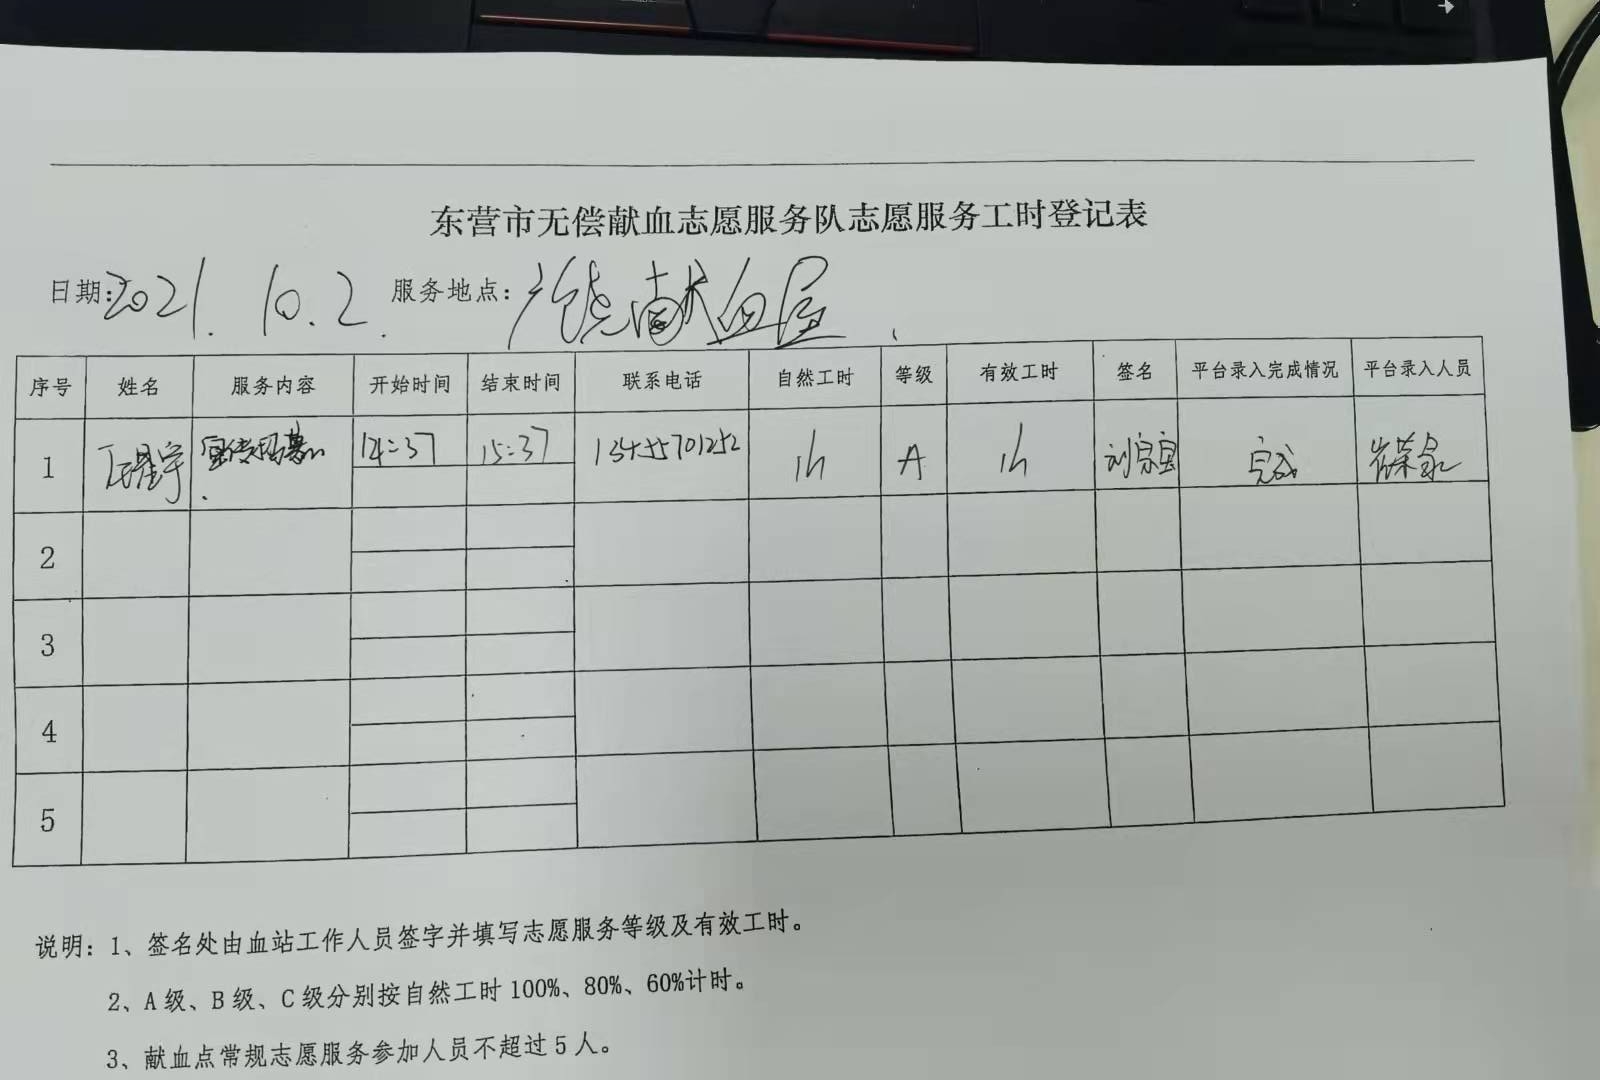 东营市无偿献血志愿服务队志愿服务工时登记表
日期:2021.10.2. 服务地点:广饶献血屋
序号 姓名 服务内容 开始时间 结束时间 联系电话 自然工时 等级 有效工时 签名 平台录入完成情况 平台录入人员
1 宣传招募 14:37 15:37 13455701252 1h A 1h 刘宗宝 完成
2
3
4
5
说明：1、签名处由血站工作人员签字并填写志愿服务等级及有效工时。
2、A级、B级、C级分别按自然工时100%、80%、60%计时。
3、献血点常规志愿服务参加人员不超过5人。